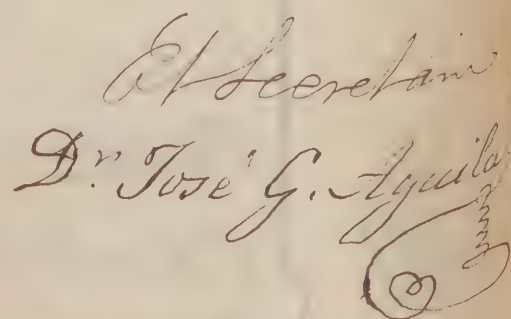 El Secretario
Dr. José G. Aguila